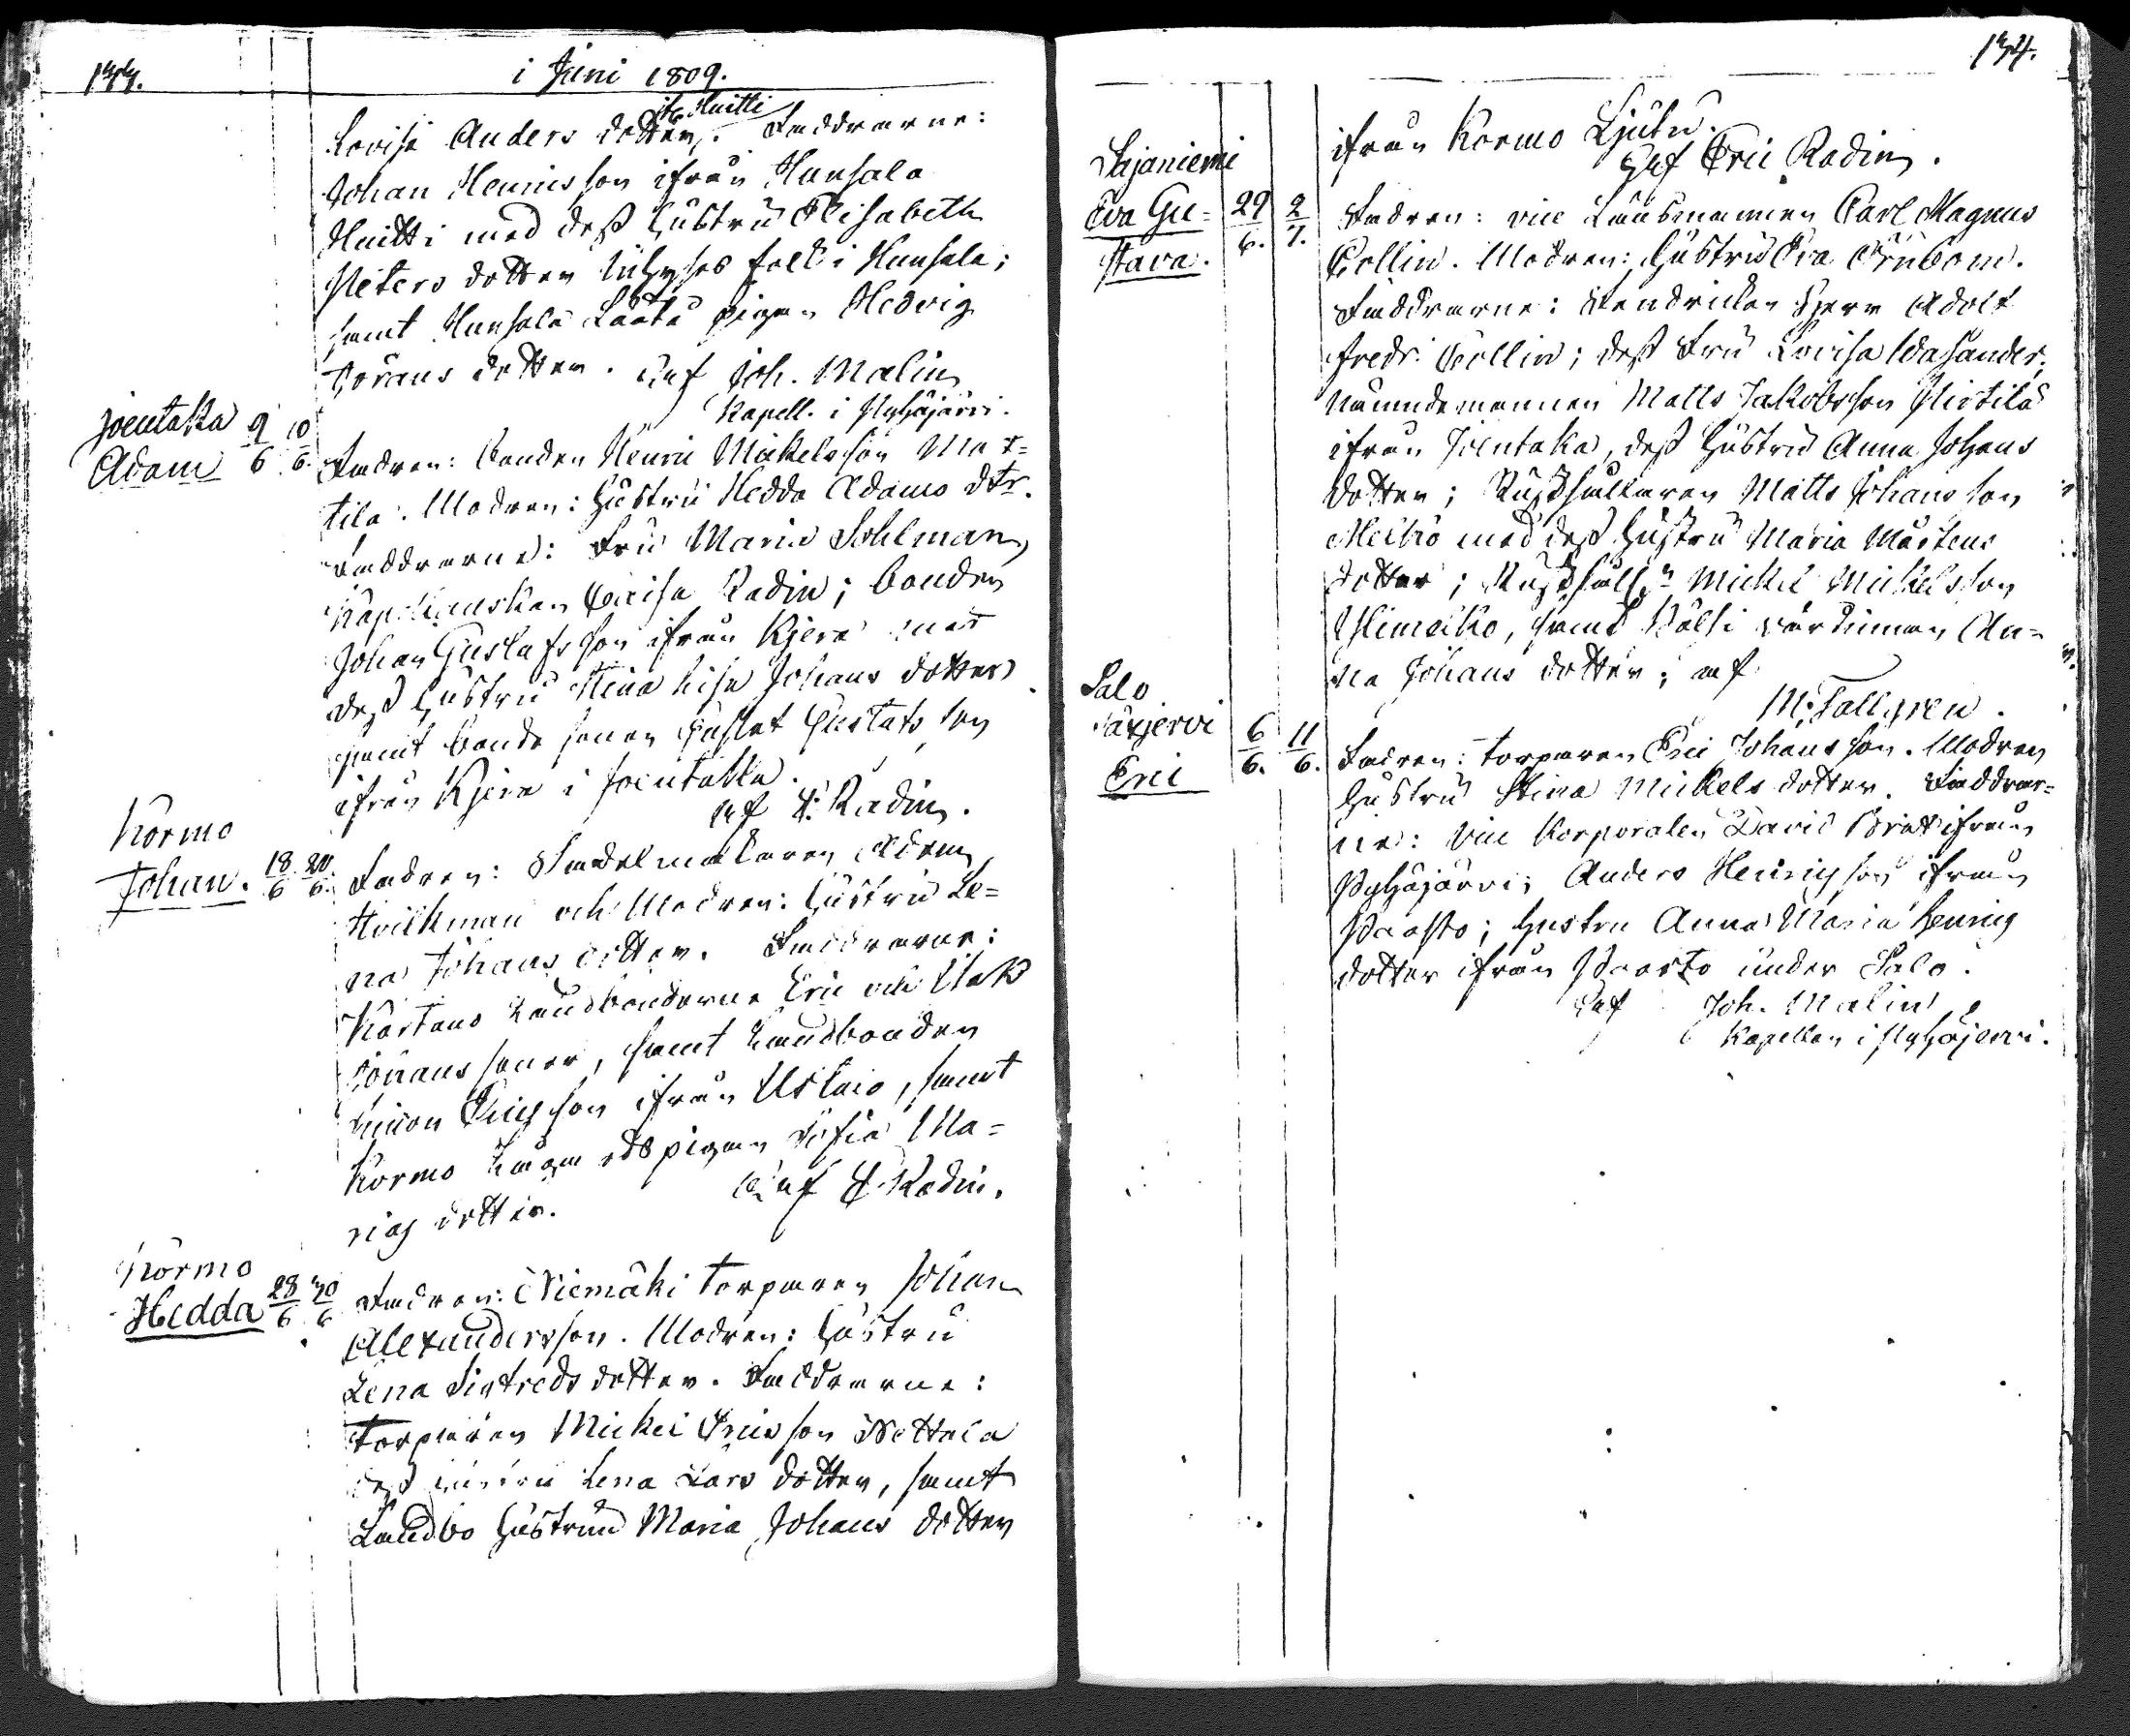 133.
i Juni 1809.
Lovisa Anders dotter, ifr. Huitti. Faddrarne:
Johan Henricsson ifrån Hunsala
Huitti med dess hustru Elisabeth
Peters dotter inhyses folk i Hunsala;
samt Hunsala Laato pigan Hedvig
Görans dotter. af Joh. Malin
Kapell. i Pyhäjärvi.
Joentaka
Adam
9/6 10/6.
Fadren: bonden Henric Mickelsson Mat=
tila. Modren: Hustru Hedda Adams dtr.
Faddrarne: Fru Maria Sohlman,
Kaplanskan Lovisa Radin; bonden
Johan Gustafsson ifrån Kjera med
dess hustru Stina Lisa Johans dotter
samt bonde sonen Gustaf Gustafsson
ifrån Kjera i Joentaka.
af E. Radin.
Kormo
Johan.
18/6 20/6.
Fadren: Sadelmakaren Adam
Hvilkman och Modren: Hustru Le=
na Johans dotter. Faddrarne:
Kartano Landbönderne Eric och Isak
Görans söner, samt Landbonden
Simon Ericsson ifrån Ustaio, samt
Kormo pigan Sofia Ma=
dotter.
af E. Radin.
Kormo
Hedda
28/6 30/6
Fadren: Niemäki torparen Johan
Alexandersson. Modren: Hustru
Lena Sigfreds dotter. Faddrarne:
Torparen Mickel Ericsson
dess hustru Lena Lars dotter, samt
Landbo Hustrun Maria Johans dotter
134.
ifrån Kormo Ljutu.
af Eric Radin.
Sajaniemi
Eva Gu=
stava.
29/6. 2/7.
Fadren: vice Länsmannen Carl Magnus
Collin. Modren: Hustru Eva Grönbom.
Faddrarne: Fendricken Herr Adolf
Fredr. Collin; dess Fru Lovisa Idasander,
Nämndemannen Matts Jakobsson Pirtilä
ifrån Joentaka, dess Hustru Anna Johans
dotter; Rusthållaren Matts Johansson
Heikö med dess Hustru Maria Mårtens
dotter; Rusthålln Mickel Mickelsson
Ylimeiko, samt Pälsi värdinnan An=
na Johans dotter; af
M: Tallgren.
Salo
Järjervi
Eric
6/6. 11/6.
Fadren: torparen Eric Johansson. Modren
Hustru Stina Mickels dotter. Faddrar=
ne: vice Korporalen David Brat ifrån
Pyhäjärvi; Anders Henricsson ifrån
Paasto; Hustru Anna Maria Henrics
dotter ifrån Paasto under Salo.
af Joh. Malin
Kapellan i Pyhäjervi.